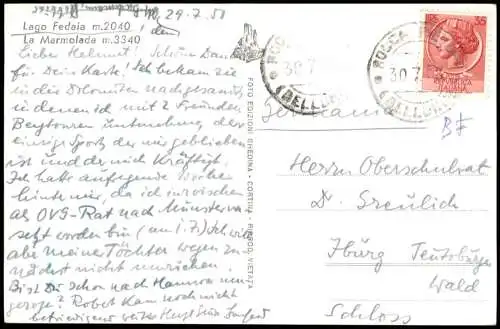 29.7.58
Lago Fedaia m.2040
La Marmolada m.3340
Lieber Helmut! Schönen Dank
für Deine Karte! Ich bekam sie
in die Dolomiten nachgesandt,
in denen ich mit 2 Freunden
Bergtouren unternehme, der
einzige Sport der mir geblieben
ist und der mich kräftigt.
Ich habe aufregende Wochen
hinter mir, da ich inzwischen
als OVG-Rat nach Münster ver-
setzt worden bin (am 1.7.) Ich will
aber meiner Töchter wegen zu-
nächst nicht umziehen.
Bist Du schon nach Hannover
gezogen? Robert kam noch nicht
Herzlichst Dein
FOTO EDIZIONI GHEDINA - CORTINA - RIPROD. VIETATA
ROCCA
30.7
(BELLUNO)
ROCCA
30.7
(BELLUNO)
35
Germania
Herrn Oberschulrat
Dr.
Iburg Teutoburger
Wald
Schloss